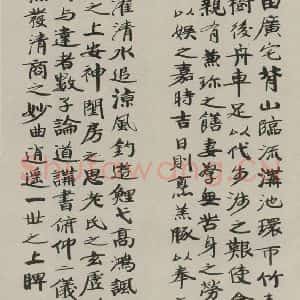 田廣宅背山臨流溝池環帀竹
樹後舟車足以代步涉之難使
親有兼珍之饍妻孥無苦身之勞
以娛之嘉時吉日則烹羔豚以奉
濯清水追涼風釣游鯉弋高鴻諷
之上安神閨房之思老氏之玄虛
與達者數子論道講書俯仰二儀
發清商之妙曲逍遙一世之上睥